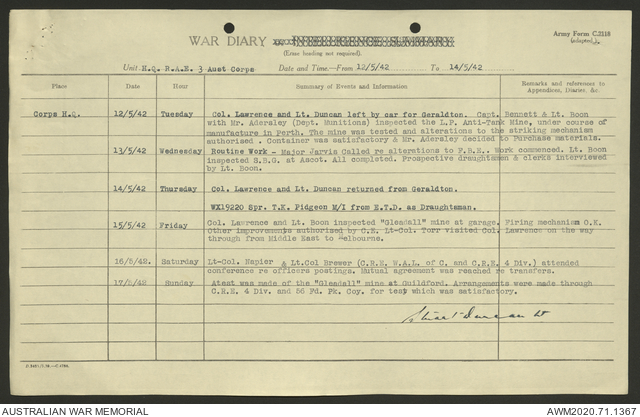 WAR DIARY or INTELLIGENCE SUMMARY
(Erase heading not required).
Army Form C.2118
(adapted).
Unit H.Q. R.A.E. 3 Aust Corps Date and Time—From 12/5/42 To 14/5/42
Place Date Hour Summary of Events and Information Remarks and references to
Appendices, Diaries, &c.
Corps H.Q. 12/5/42 Tuesday Col. Lawrence and Lt. Duncan left by car for Geraldton. Capt. Bennett & Lt. Boon
with Mr. Adersley (Dept. Munitions) inspected the L.P. Anti-Tank Mine, under course of
manufacture in Perth. The mine was tested and alterations to the striking mechanism
authorised. Container was satisfactory & Mr. Adersley decided to Purchase materials.
13/5/42 Wednesday Routine Work - Major Jarvis Called re alterations to F.B.E.. Work commenced. Lt. Boon
inspected S.B.G. at Ascot. All completed. Prospective draughtsmen & clerks interviewed
by Lt. Boon.
14/5/42 Thursday Col. Lawrence and Lt. Duncan returned from Geraldton.
WX15220 Spr. T.K. Pidgeon M/I from E.T.D. as Draughtsman.
15/5/42 Friday Col. Lawrence and Lt. Boon inspected "Gleadall" mine at garage. Firing mechanism O.K.
Other improvements authorised by C.E. Lt-Col. Torr visited Col. Lawrence on the way
through from Middle East to Melbourne.
16/5/42. Saturday Lt-Col. Napier & Lt.Col Brewer (C.R.E. W.A.L. of C. and C.R.E. 4 Div.) attended
conference re officers postings. Mutual agreement was reached re transfers.
17/5/42 Sunday Atest was made of the "Gleadell" mine at Guildford. Arrangements were made through
C.R.E. 4 Div. and 56 Fd. Pk. Coy. for test which was satisfactory.
Stuart Duncan Lt
AUSTRALIAN WAR MEMORIAL AWM2020.71.1367